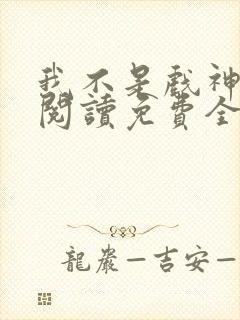 我不是戲神
閱讀免費全
龍巖—吉安—